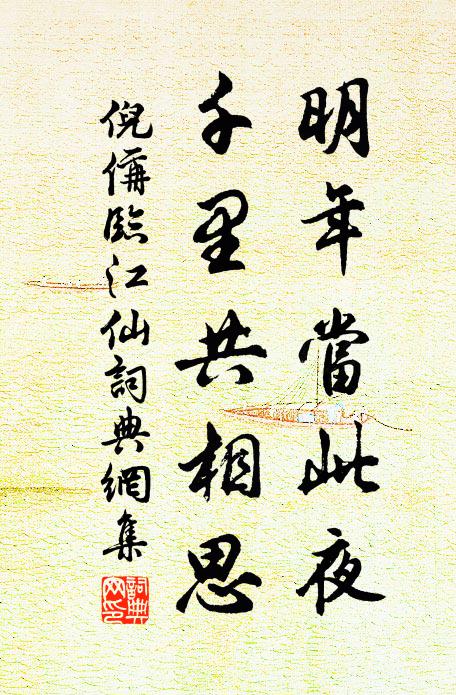 明年當此夜
千里共相思
倪偁臨江仙詞典網集
詞典網印